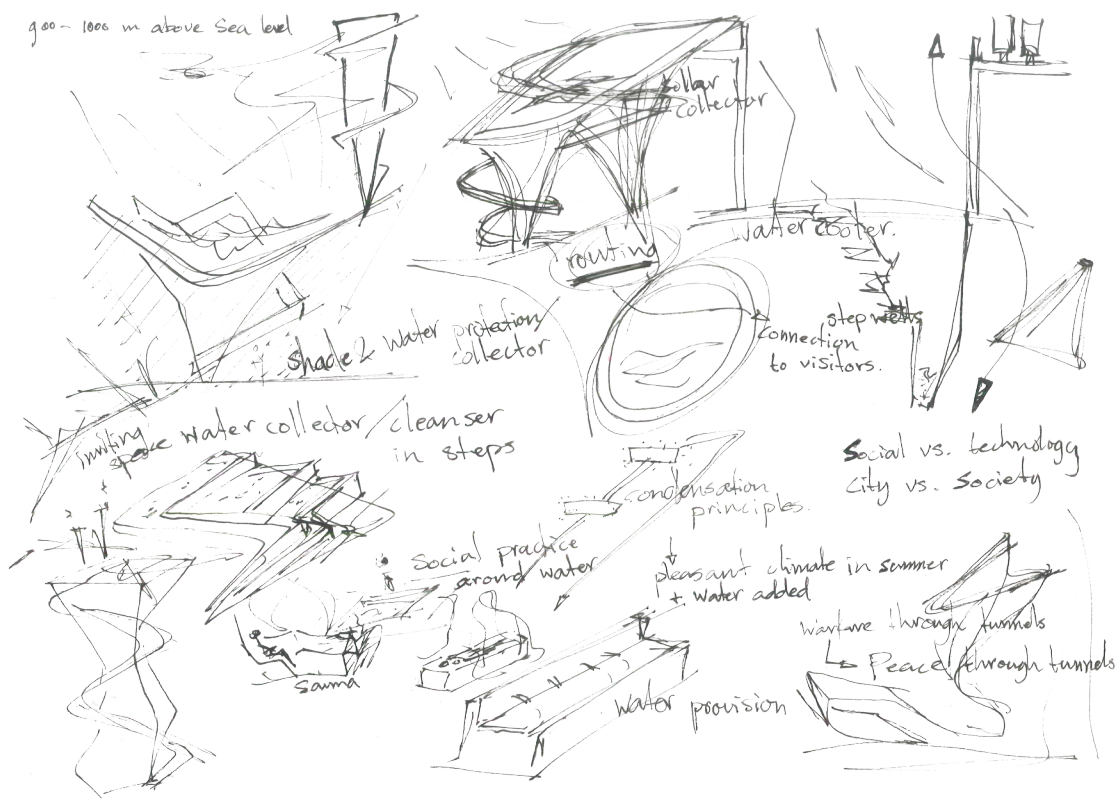 900 - 1000 m above sea level
sollar
collector
routing
water cooler.
step wells
connection
to visitors.
shade & water protection
collector
inviting
space
water collector / cleanser
in steps
Social vs. technology
City vs. Society
condensation
principles.
Social practice
around water
pleasant climate in summer
+ water added
warfare through tunnels
Peace through tunnels
Sauna
water provision